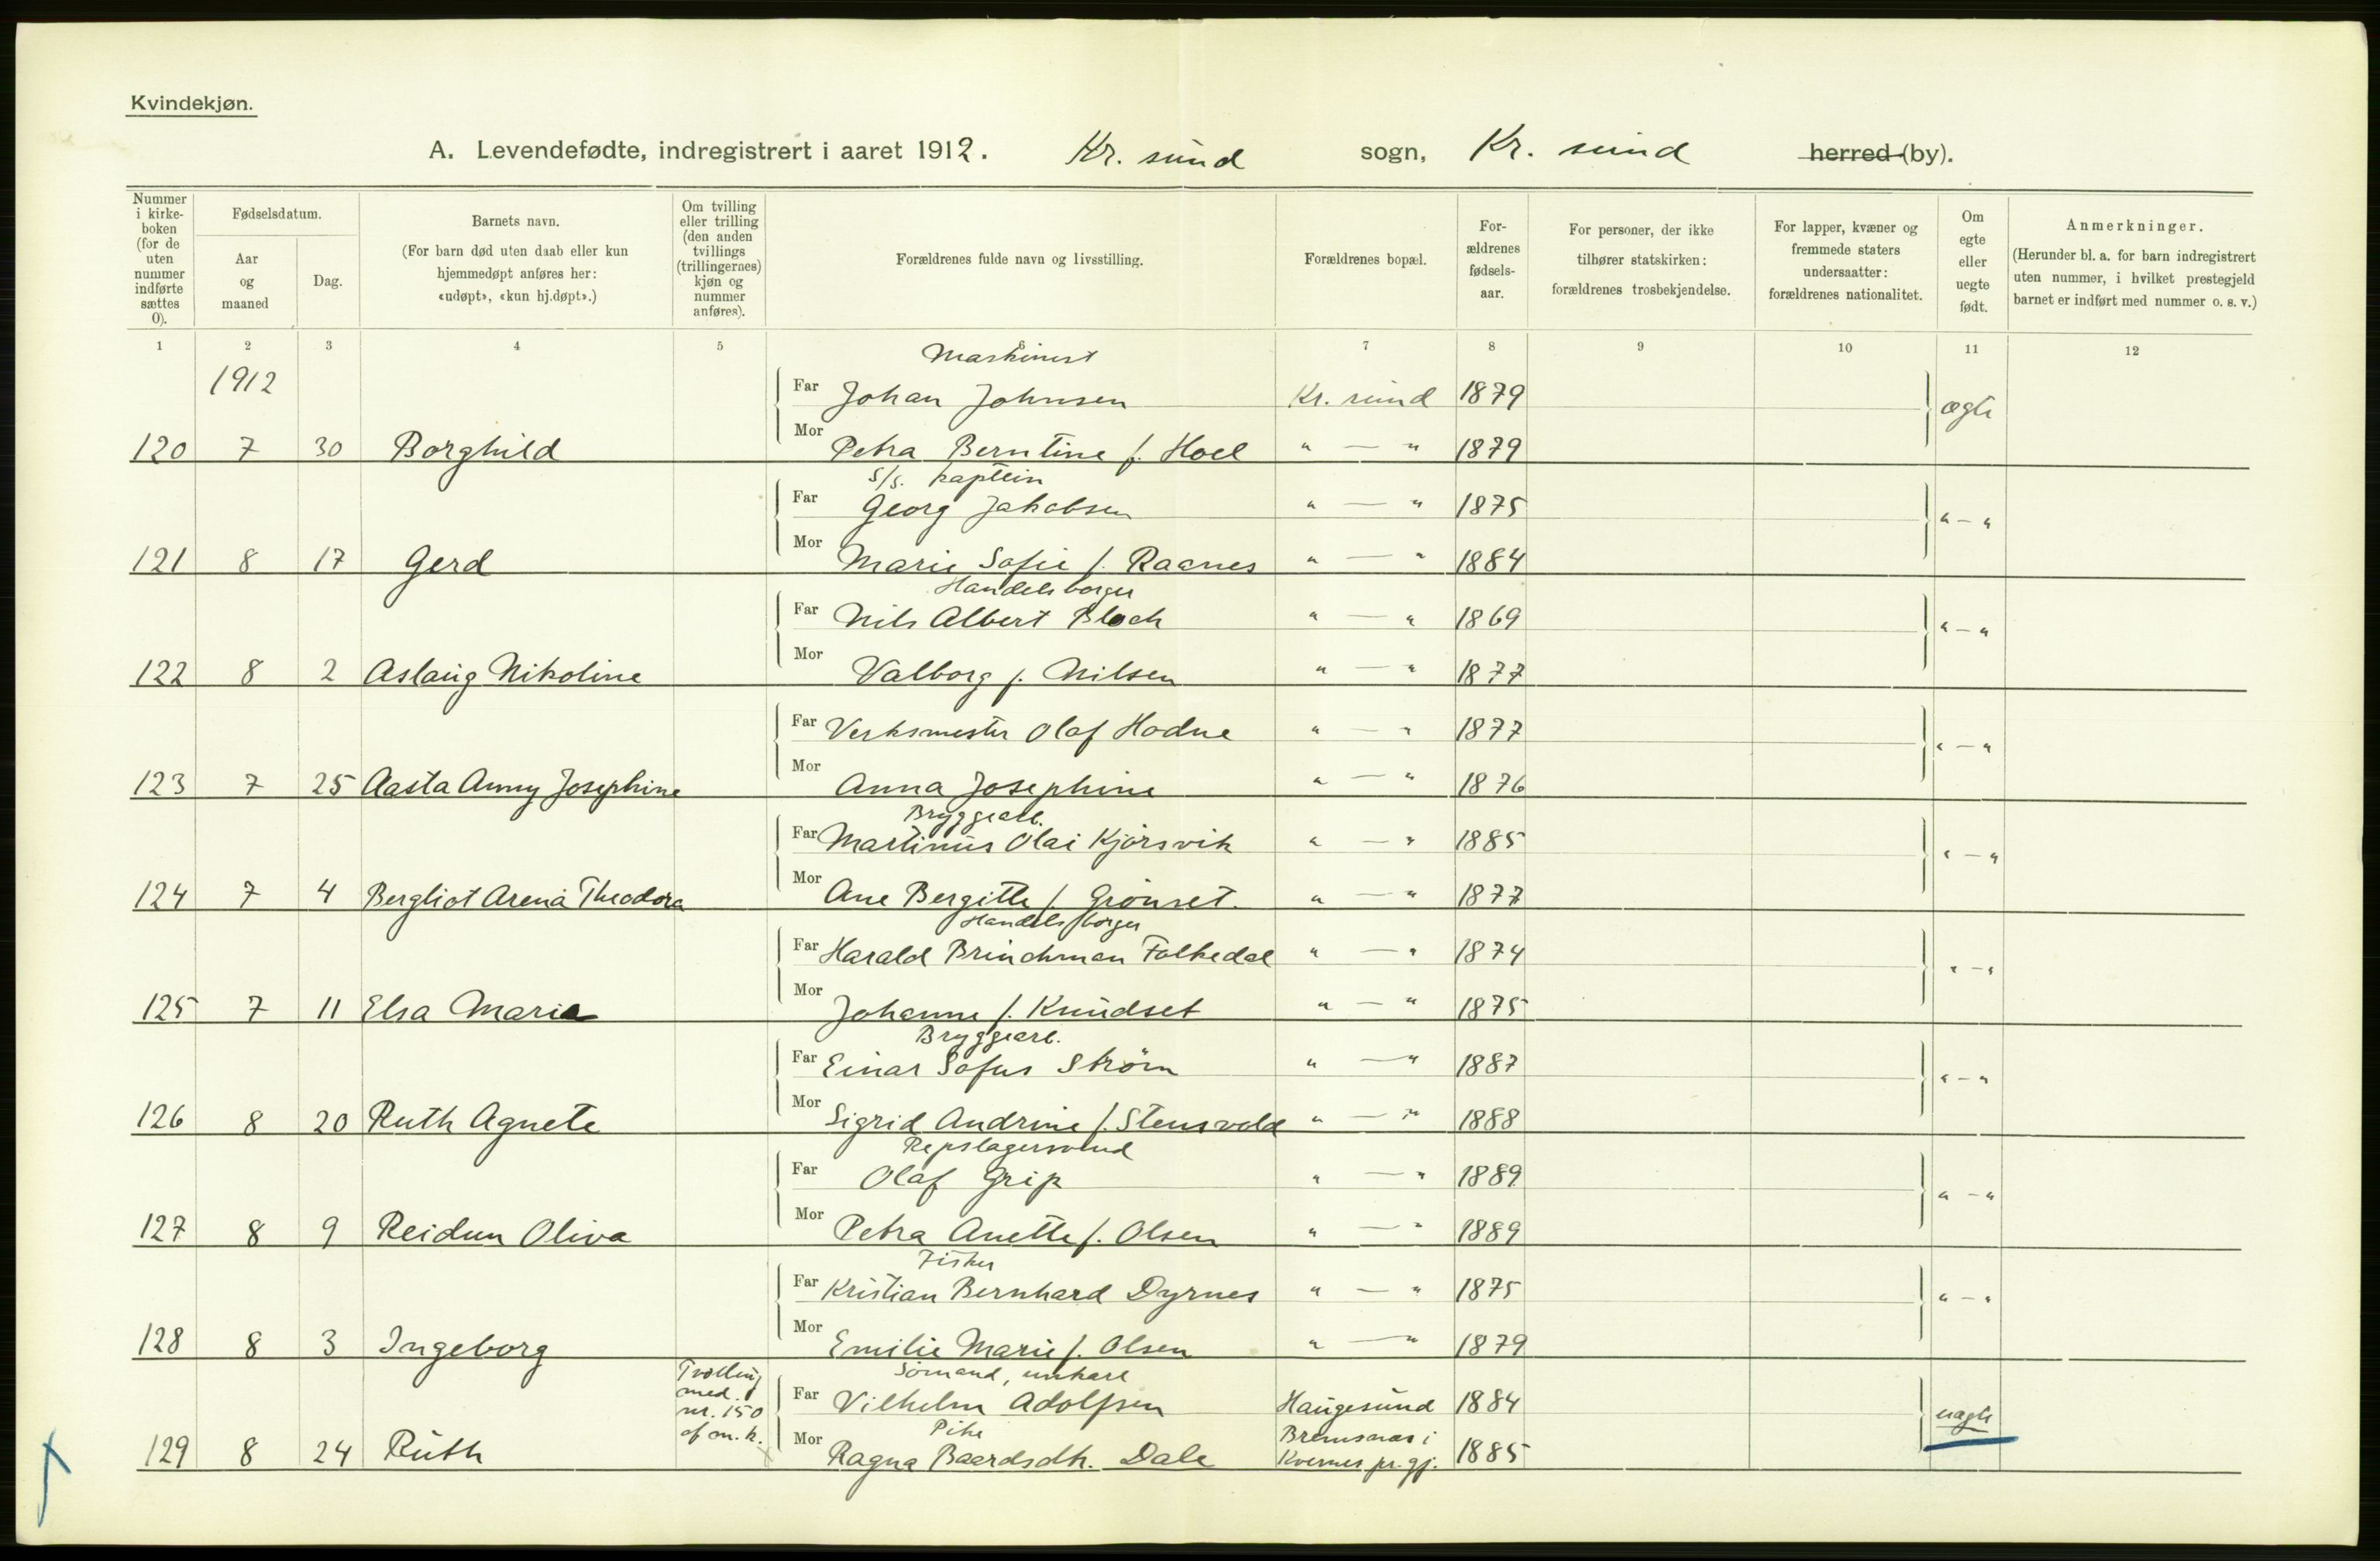 Kvindekjøn.
A. Levendefødte, indregistrert i aaret 1912. Kr. sund sogn, Kr. sund herred (by).
Nummer i kirkeboken (for de uten nummer indførte sættes 0).
Fødselsdatum.
Aar og maaned
Dag.
Barnets navn.
(For barn død uten daab eller kun hjemmedøpt anføres her: «udøpt», «kun hj.døpt».)
Om tvilling eller trilling (den anden tvillings (trillingernes) kjøn og nummer anføres).
Forældrenes fulde navn og livsstilling.
Forældrenes bopæl.
Forældrenes fødselsaar.
For personer, der ikke tilhører statskirken: forældrenes trosbekjendelse.
For lapper, kvæner og fremmede staters undersaatter: forældrenes nationalitet.
Om egte eller uegte født.
Anmerkninger.
(Herunder bl. a. for barn indregistrert uten nummer, i hvilket prestegjeld barnet er indført med nummer o. s. v.)
1 2 3 4 5 6 7 8 9 10 11 12
1912
Maskinist
Far Johan Johnsen Kr. sund 1879 ægte
120 7 30 Borghild Mor Petra Berntine f. Hoel " — " 1879
S/s. kaptein
Far Georg Jakobsen " — " 1875 " — "
121 8 17 Gerd Mor Marie Sofie f. Raanes " — " 1884
Handelsborger
Far Nils Albert Bloch " — " 1869 " — "
122 8 2 Aslaug Nikoline Mor Valborg f. Nilsen " — " 1877
Far Verksmester Olaf Hodne " — " 1877 " — "
123 7 25 Aasta Anny Josephine Mor Anna Josephine " — " 1876
Bryggearb.
Far Martinus Olai Kjørsvik " — " 1885 " — "
124 7 4 Bergliot Arena Theodora Mor Ane Bergitte f. Grønset. " — " 1877
Handelsborger
Far Harald Brinchman Folkedal " — " 1874 " — "
125 7 11 Elsa Marie Mor Johanne f. Knudset " — " 1875
Bryggearb.
Far Einar Sofus Strøm " — " 1887 " — "
126 8 20 Ruth Agnete Mor Sigrid Andrine f. Stensvold " — " 1888
Repslagersvend
Far Olaf Grip " — " 1889 " — "
127 8 9 Reidun Oliva Mor Petra Anette f. Olsen " — " 1889
Fisker
Far Kristian Bernhard Dyrnes " — " 1875 " — "
128 8 3 Ingeborg Mor Emilie Marie f. Olsen " — " 1879
Tvilling med nr. 150 af m. k.
Sømand, unkarl
Far Vilhelm Adolfsen Haugesund 1884 uægte
Pike
129 8 24 Ruth Mor Ragna Baardsdtr. Dale Bremsnes i Kvernes pr.gj. 1885